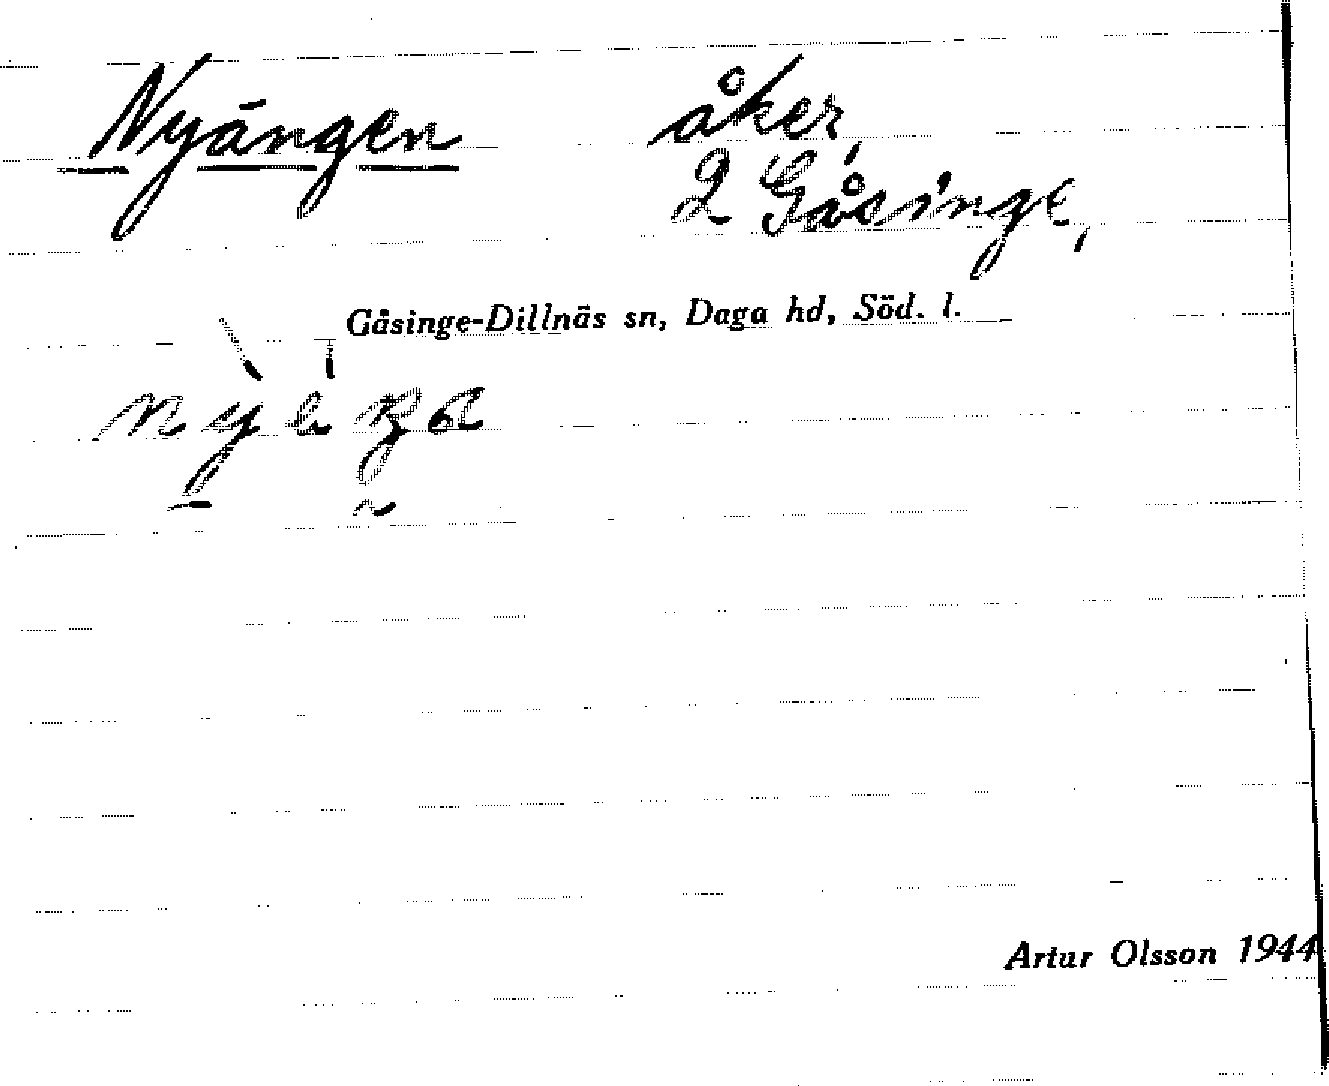 Nyängen åker,
2 Gåsinge,
Gåsinge-Dillnäs sn, Daga hd, Söd. l.
Artur Olsson 1944